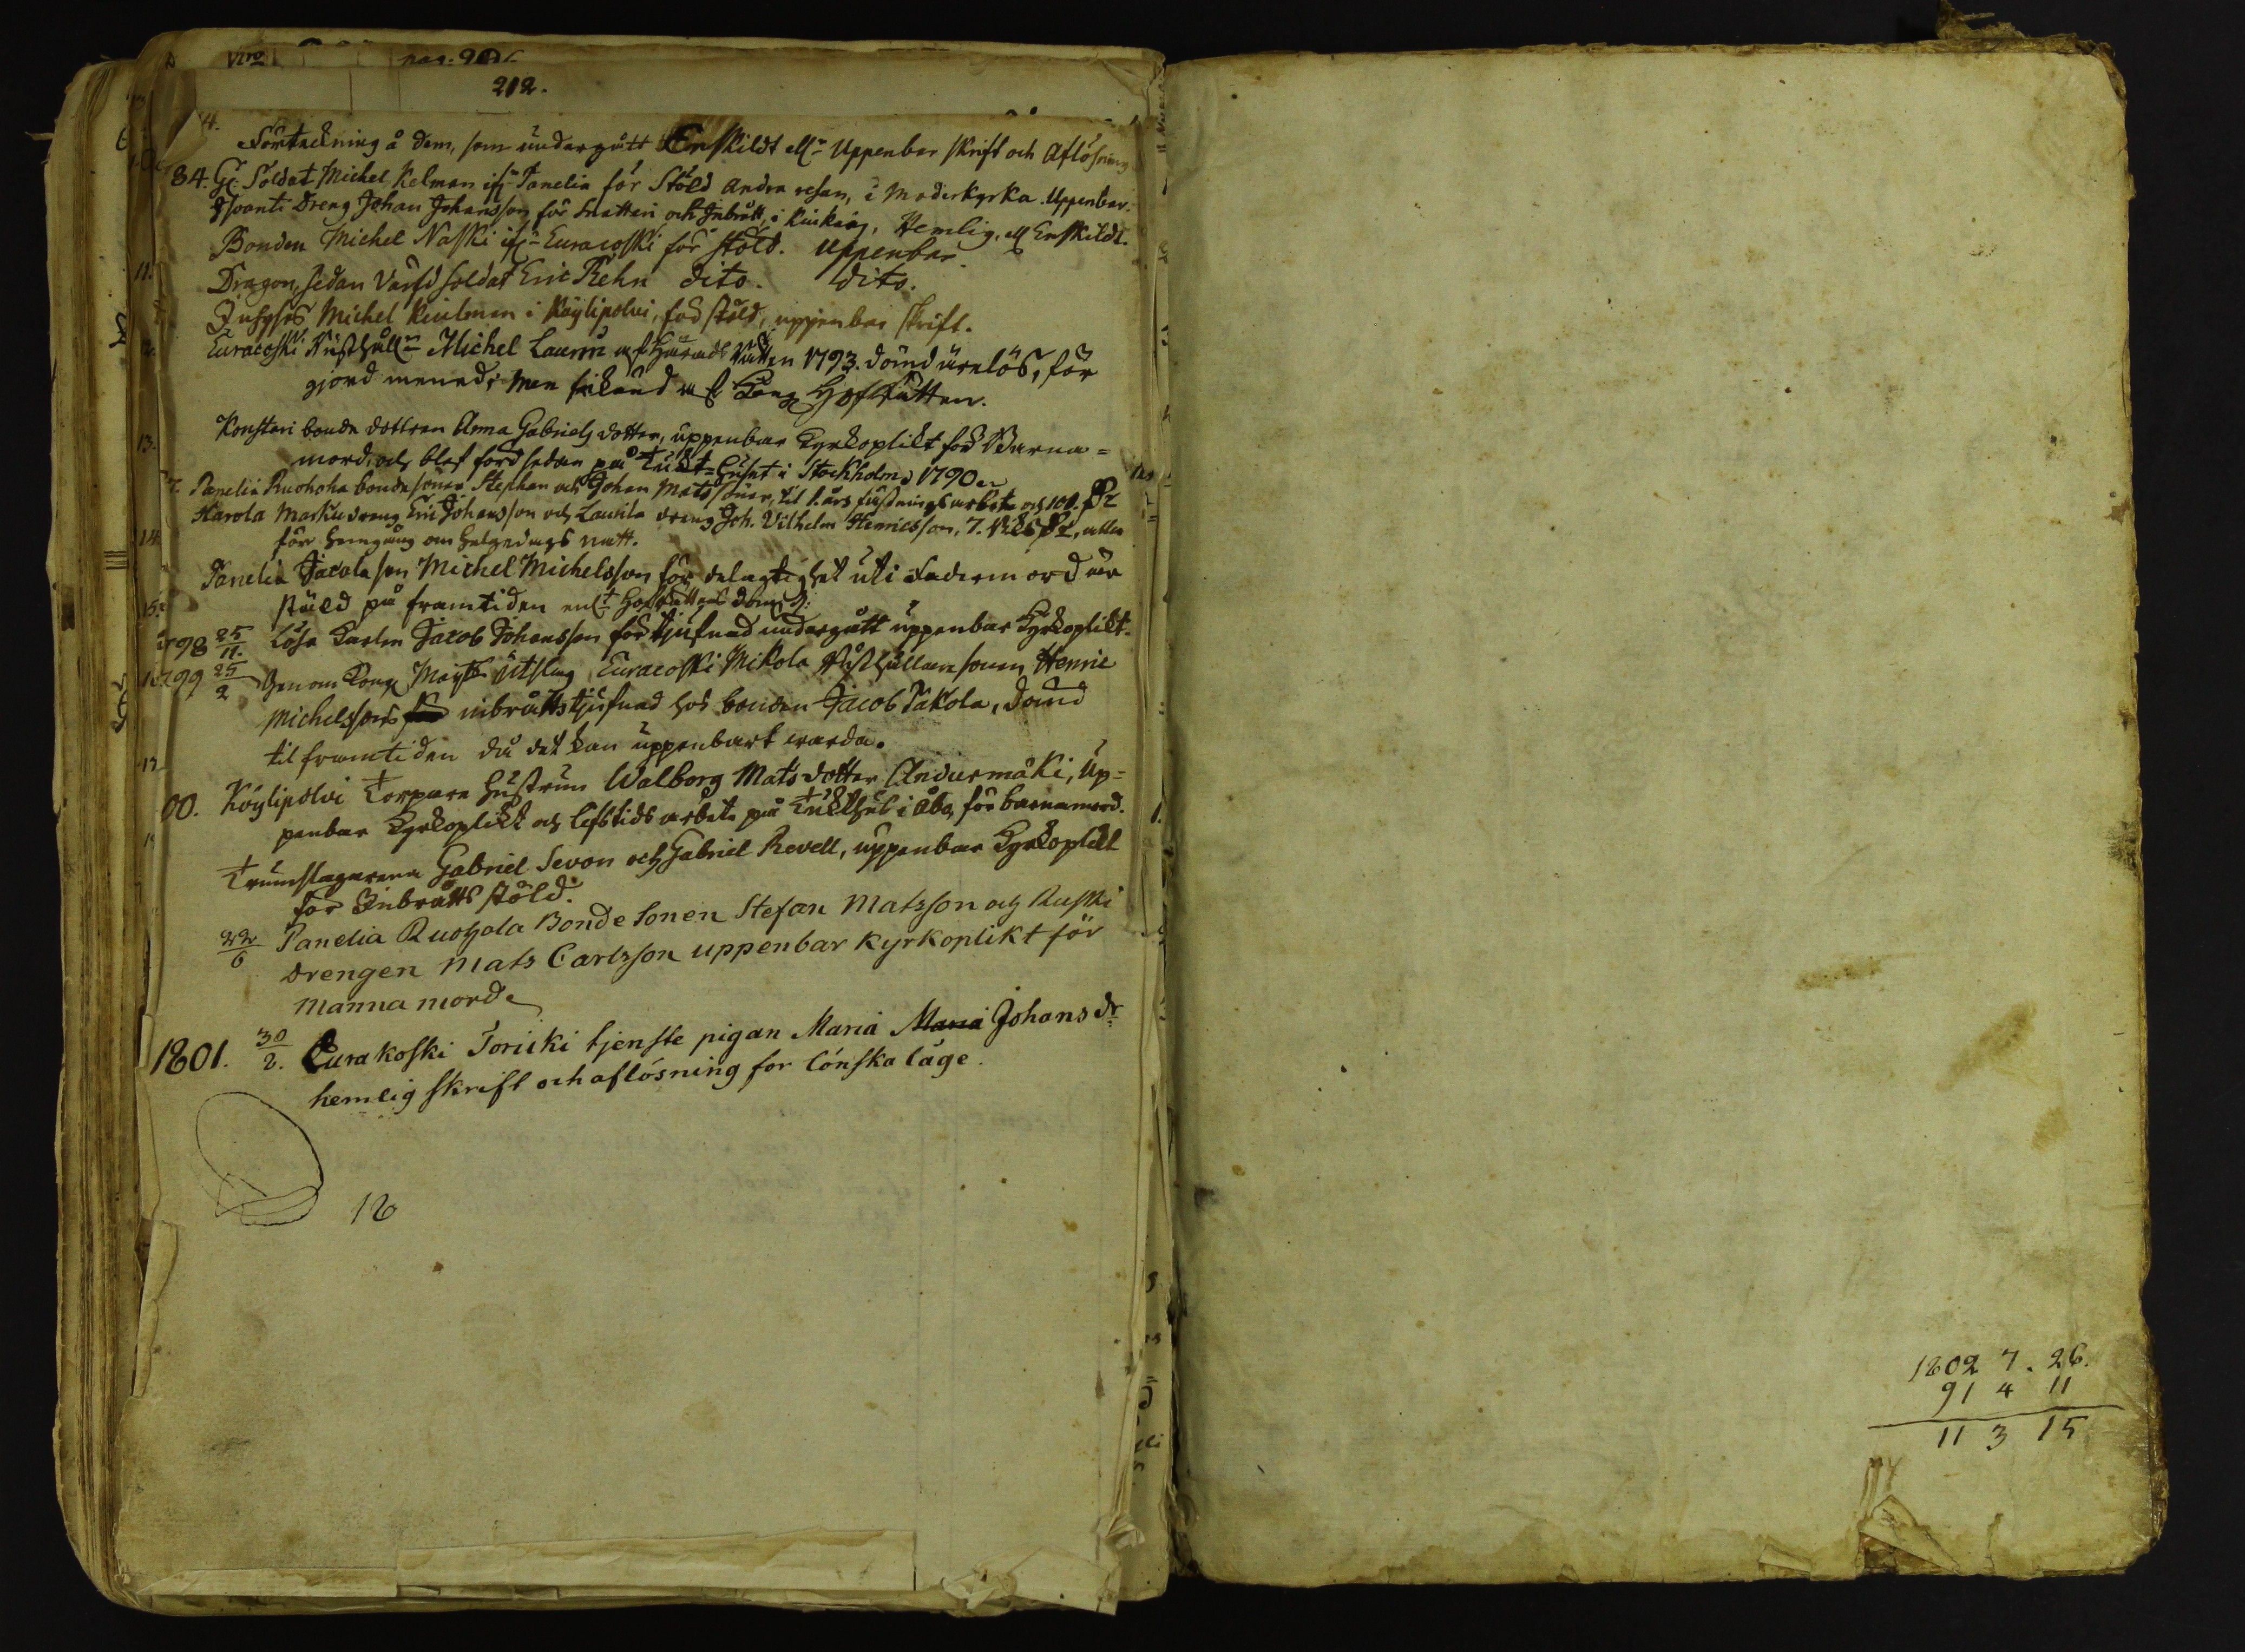 212.
Förteckning å dem, som undergått Enskildt ell:r Uppenbar skrift och Aflösning
84. Gl. Soldat Michel Kelman ifr: Panelia för Stöld andra resan, i Moderkyrka. Uppenbar.
Dreng Johan Johansson för Snatteri och Inbrått, i Kiukais, Hemlig, ell Enskildt.
Bonden Michel Naski ifr: Euracoski för stöld. Uppenbar
Dragon, sedan Värfd soldat Eric Rehn dito. dito.
Inhyses Michel Kuulman i Köylipolvi, för stöld, uppenbar skrift.
Euracoski Rusthåll:n Michel Laurin af Härads Rätten 1793. dömd ärelös, för
giord mened; men frikänd af Kongl Hofrätten.
Konstari bonde dottren Anna Gabriels dotter, uppenbar Kyrkoplikt för Barna=
mord, och blef förd sedan på Tukt=huset i Stockholm 1790
Panelia Ruohoha bonde söner Stephan och Johan Mats söner, til 1. års fästningsarbete och 100.
Harola Marku dreng Eric Johansson och Laurila dreng Joh. Vilhelm Henricsson, 7. alla
för hemgång om helgedags natt.
Panelia Jacola son Michel Michelsson för delagtighet uti Fadermord är
stäld på framtiden enl:t Hofrättens dom
1798 25/11. Lösa Karlen Jacob Johansson för tjufnad undergått uppenbar Kyrkoplikt.
1799 25/2 Genom Kongl Maj:ts Utslag Euracoski Mikola Rusthållare sonen Henric
Michelsson inbråtts tjufnad hos bonden Jacob Takola, dömd
til framtiden då det kan uppenbart warda.
00. Köylipolvi Torpare hustrun Walborg Mats dotter Andusmäki, Up=
penbar Kyrkoplikt och lifstids arbete på Tukthus i Åbo, för barnamord.
Trumslagarena Gabriel Sevon och Gabriel Revell, uppenbar Kyrkoplikt
för Inbråtts stöld.
22/6 Panelia Ruohola Bonde Sonen Stefan Matsson och Ruski
Drengen Mats Carlsson uppenbar Kyrkoplikt för
Manna mord.
1801. 30/2. Eurakoski Toriski tjenste pigan Maria Maria Johans dr
hemlig skrift och aflösning for lönska läge.
18
1802 7. 26.
91 4 11
11 3 15